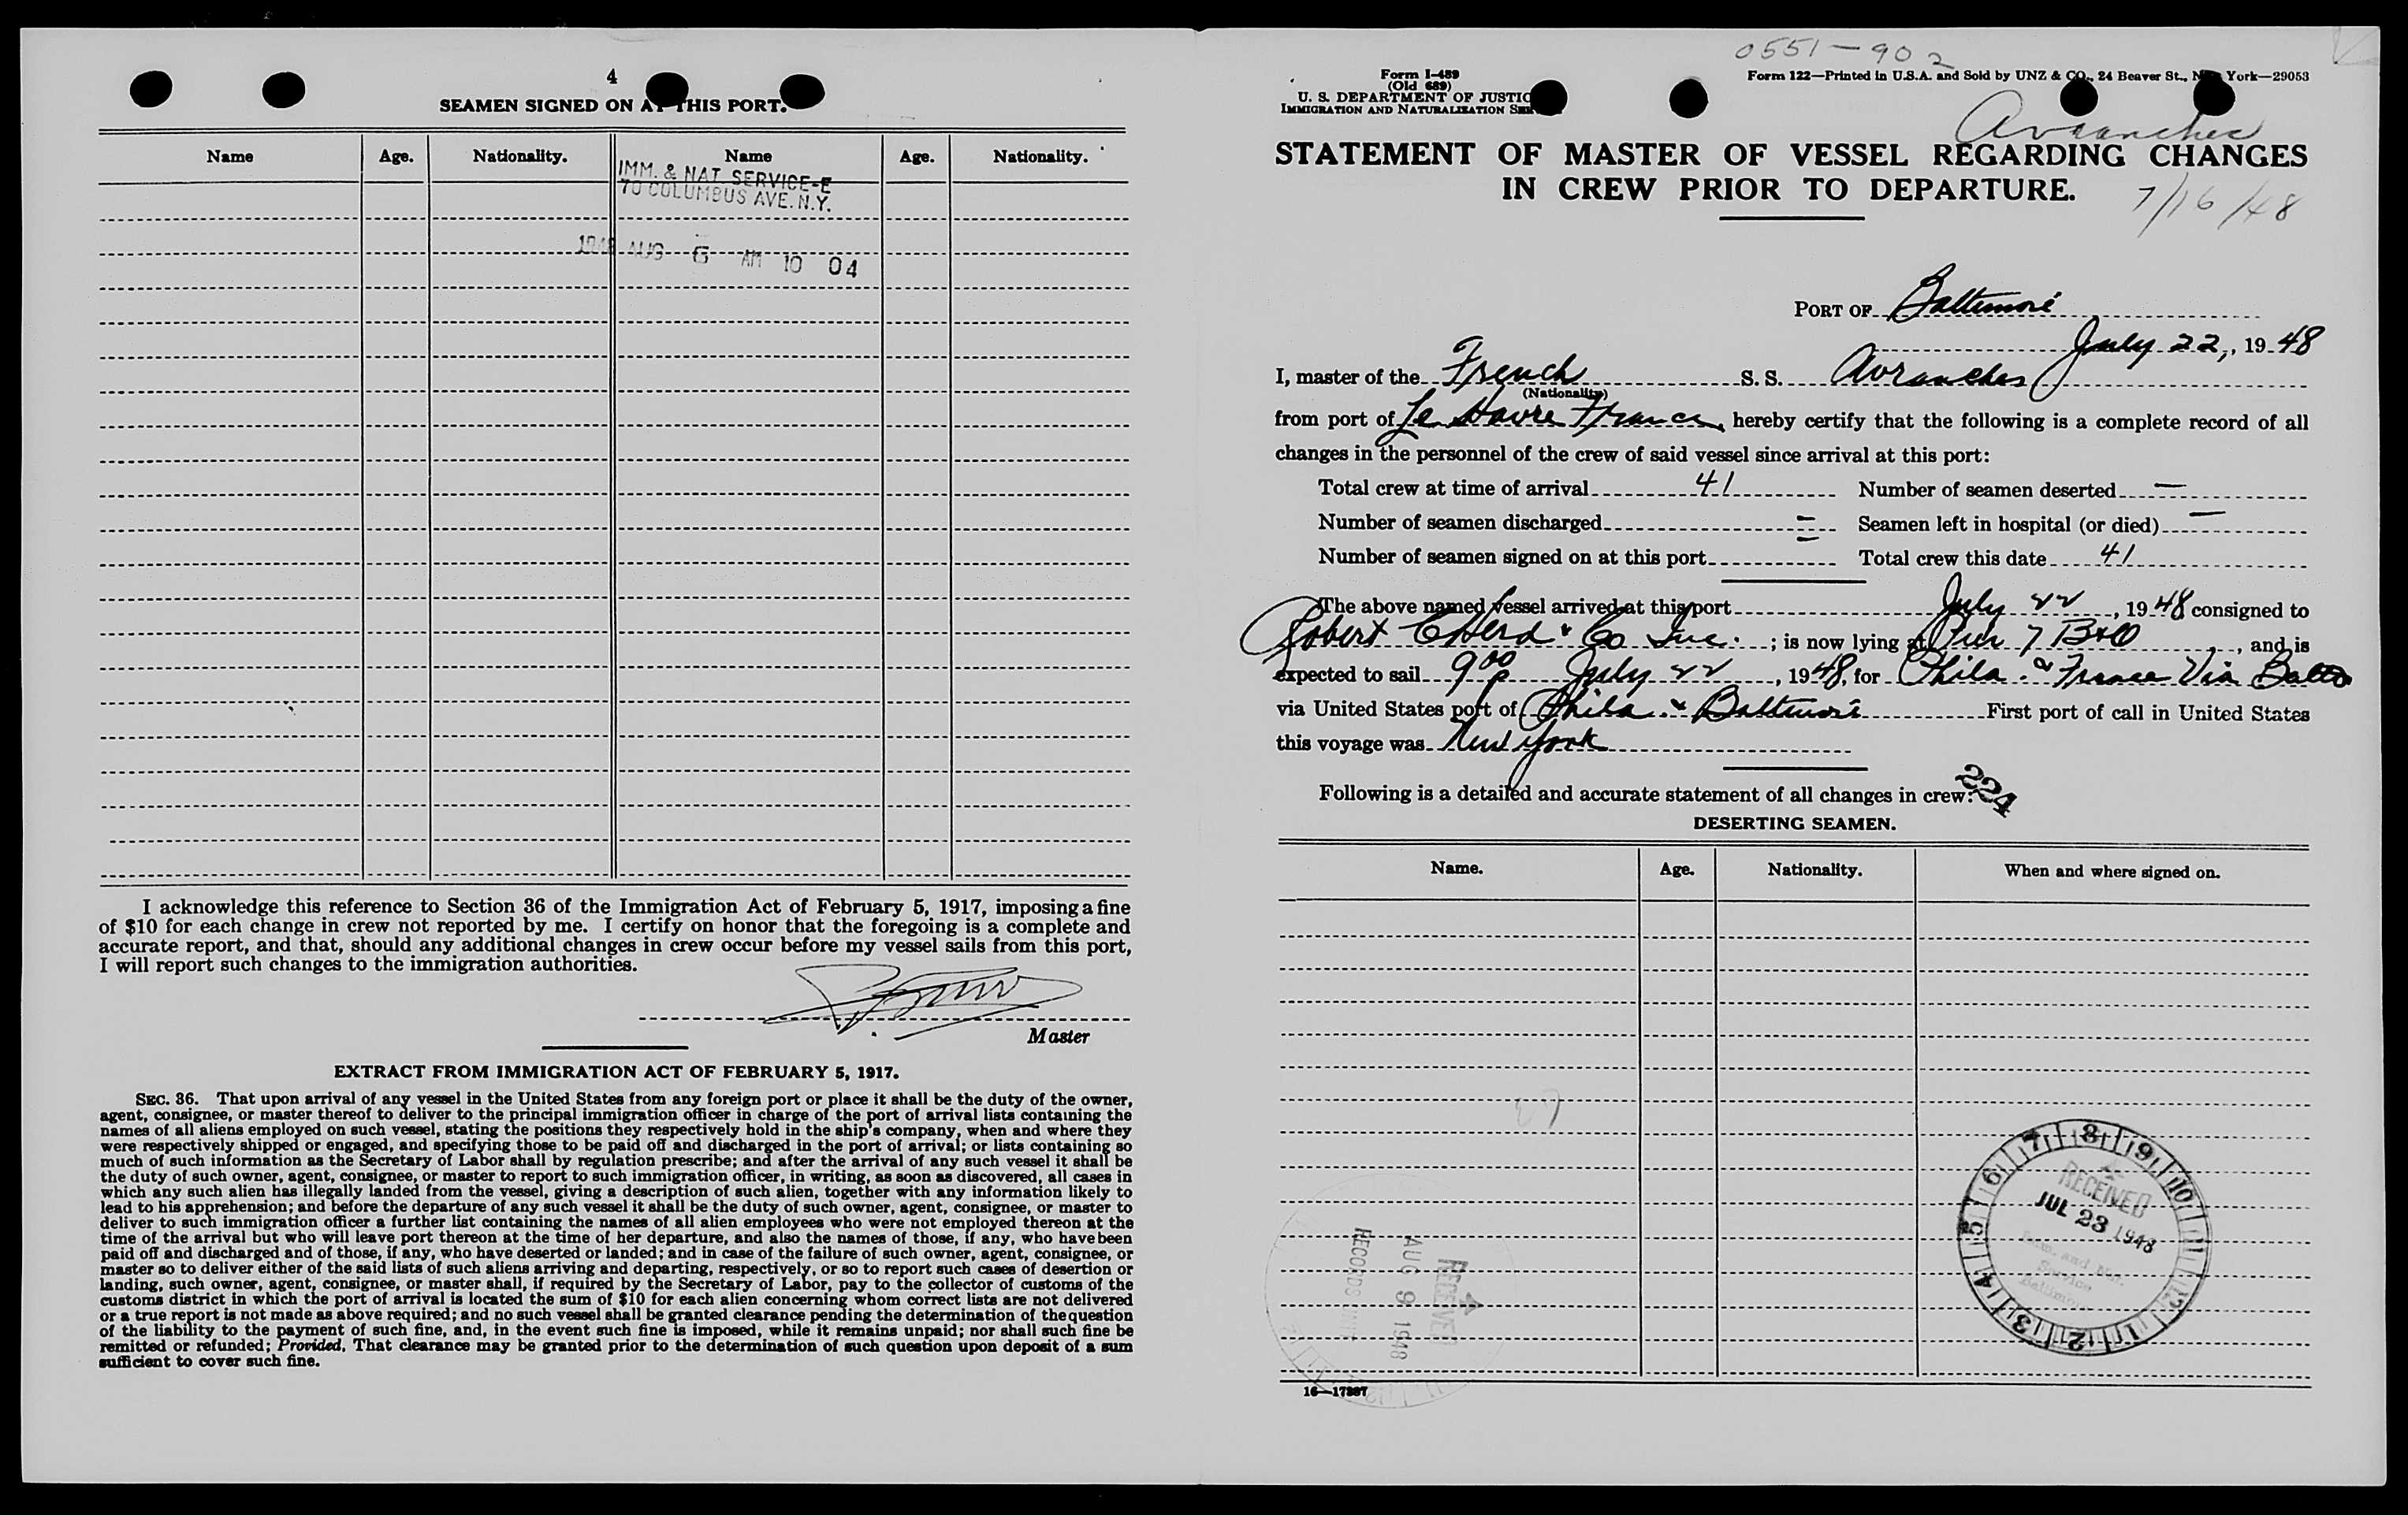 4
SEAMEN SIGNED ON AT THIS PORT.
Name Age. Nationality. Name Age. Nationality.
IMM. & NAT SERVICE-E
70 COLUMBUS AVE. N.Y.
1948 AUG 6 AM 10 04
I acknowledge this reference to Section 36 of the Immigration Act of February 5, 1917, imposing a fine
of $10 for each change in crew not reported by me. I certify on honor that the foregoing is a complete and
accurate report, and that, should any additional changes in crew occur before my vessel sails from this port,
I will report such changes to the immigration authorities.
Master
EXTRACT FROM IMMIGRATION ACT OF FEBRUARY 5, 1917.
SEC. 36. That upon arrival of any vessel in the United States from any foreign port or place it shall be the duty of the owner,
agent, consignee, or master thereof to deliver to the principal immigration officer in charge of the port of arrival lists containing the
names of all aliens employed on such vessel, stating the positions they respectively hold in the ship's company, when and where they
were respectively shipped or engaged, and specifying those to be paid off and discharged in the port of arrival; or lists containing so
much of such information as the Secretary of Labor shall by regulation prescribe; and after the arrival of any such vessel it shall be
the duty of such owner, agent, consignee, or master to report to such immigration officer, in writing, as soon as discovered, all cases in
which any such alien has illegally landed from the vessel, giving a description of such alien, together with any information likely to
lead to his apprehension; and before the departure of any such vessel it shall be the duty of such owner, agent, consignee, or master to
deliver to such immigration officer a further list containing the names of all alien employees who were not employed thereon at the
time of the arrival but who will leave port thereon at the time of her departure, and also the names of those, if any, who have been
paid off and discharged and of those, if any, who have deserted or landed; and in case of the failure of such owner, agent, consignee, or
master so to deliver either of the said lists of such aliens arriving and departing, respectively, or so to report such cases of desertion or
landing, such owner, agent, consignee, or master shall, if required by the Secretary of Labor, pay to the collector of customs of the
customs district in which the port of arrival is located the sum of $10 for each alien concerning whom correct lists are not delivered
or a true report is not made as above required; and no such vessel shall be granted clearance pending the determination of the question
of the liability to the payment of such fine, and, in the event such fine is imposed, while it remains unpaid; nor shall such fine be
remitted or refunded; Provided, That clearance may be granted prior to the determination of such question upon deposit of a sum
sufficient to cover such fine.
0551-902
Form I-489
(Old 689)
U. S. DEPARTMENT OF JUSTIC
IMMIGRATION AND NATURALIZATION SER
Form 122—Printed in U.S.A. and Sold by UNZ & CO., 24 Beaver St., N York—29053
Avranches
STATEMENT OF MASTER OF VESSEL REGARDING CHANGES
IN CREW PRIOR TO DEPARTURE.
7/16/48
PORT OF Baltimore
July 22, 1948
I, master of the French S. S. Avranches
(Nationality)
from port of Le Havre France, hereby certify that the following is a complete record of all
changes in the personnel of the crew of said vessel since arrival at this port:
Total crew at time of arrival 41 Number of seamen deserted —
Number of seamen discharged — Seamen left in hospital (or died) —
Number of seamen signed on at this port — Total crew this date 41
The above named vessel arrived at this port July 22, 1948 consigned to
Robert C Herd & Co Inc. ; is now lying at Pier 7 B&O, and is
expected to sail 9 00 p July 22, 1948, for Phila. & France Via Balto
via United States port of Phila. & Baltimore First port of call in United States
this voyage was New York
Following is a detailed and accurate statement of all changes in crew:
224
DESERTING SEAMEN.
Name. Age. Nationality. When and where signed on.
7 8 9 10 12 1 2 3 4 5 6
RECEIVED
JUL 23 1948
Imm. and Nat.
Service
Baltimore
RECEIVED
AUG 9 1948
RECORDS UNIT
16—17887